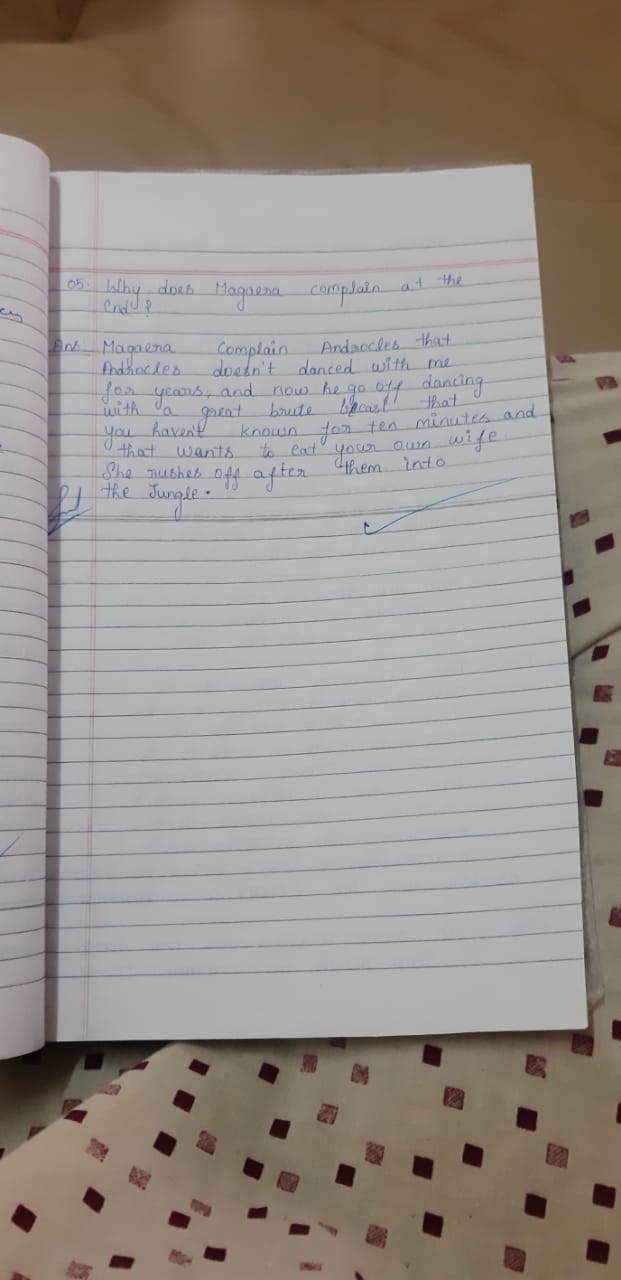 05. Why does Magaera complain at the
end?
Ans. Magaera Complain Androcles that
Androcles doesn't danced with me
for years, and now he go off dancing
with a great brute beast that
you haven't known for ten minutes and
that wants to eat your own wife.
She rushes off after them into
the Jungle.